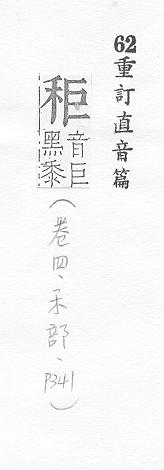 62重訂直音篇
秬音巨黑黍
(卷四、禾部、P341)